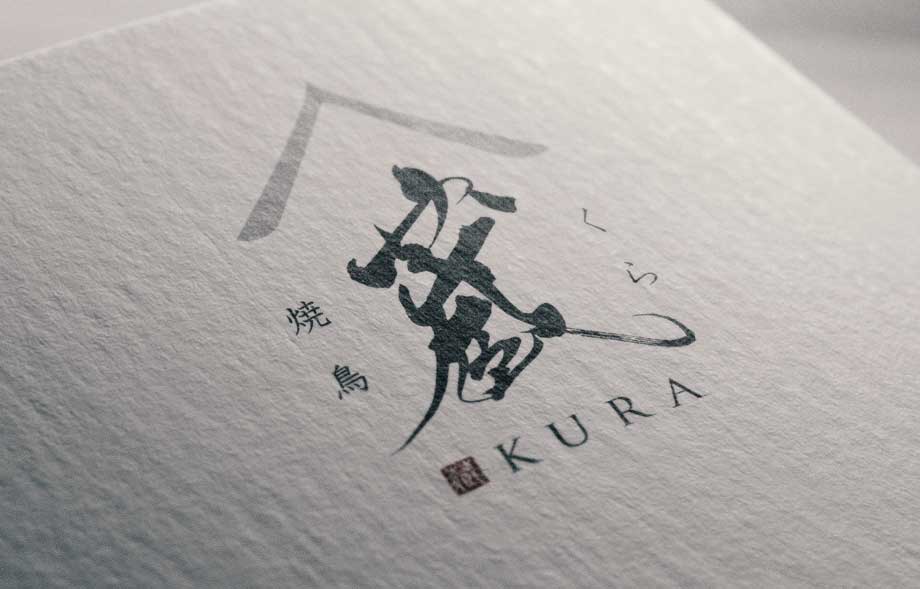 蔵
くら
焼鳥
KURA